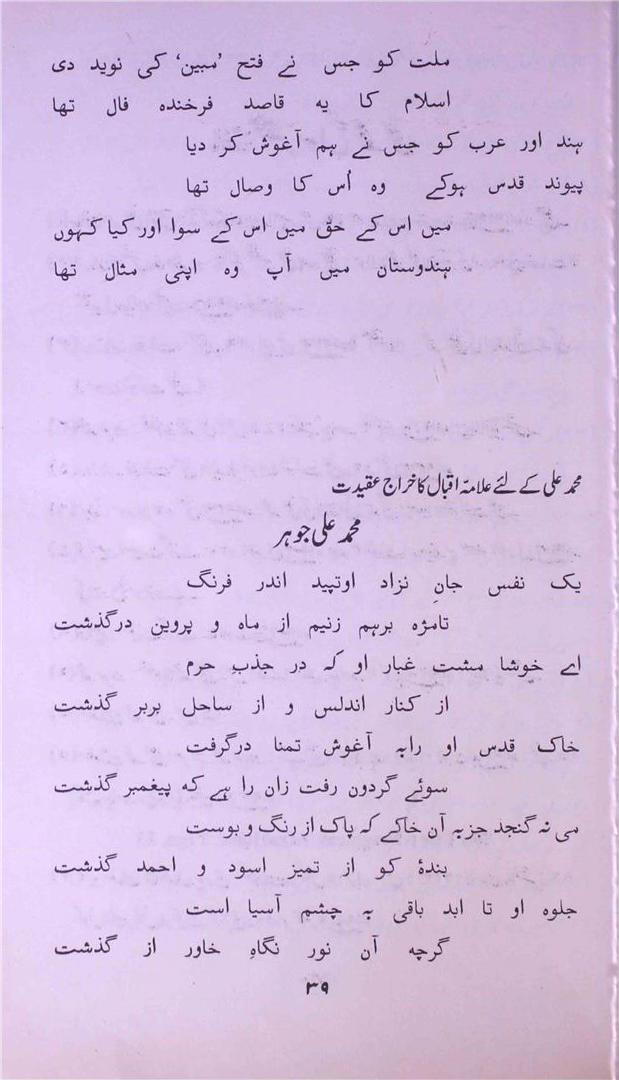 ملت کو جس نے فتح ’مبین‘ کی نوید دی
اسلام کا یہ قاصد فرخندہ فال تھا
ہند اور عرب کو جس نے ہم آغوش کر دیا
پیوند قدس ہوکے وہ اُس کا وصال تھا
میں اس کے حق میں اس کے سوا اور کیا کہوں
ہندوستان میں آپ وہ اپنی مثال تھا
محمد علی کے لئے علامہ اقبال کا خراج عقیدت
محمد علی جوہر
یک نفس جانِ نزاد اوتپید اندر فرنگ
تامژہ برہم زنیم از ماہ و پروین درگذشت
اے خوشا مشت غبار او کہ در جذبِ حرم
از کنار اندلس و از ساحل بربر گذشت
خاک قدس او رابہ آغوش تمنا درگرفت
سوئے گردون رفت زان را ہے کہ پیغمبر گذشت
می نہ گنجد جزبہ آن خاکے کہ پاک از رنگ و بوست
بندۂ کو از تمیز اسود و احمد گذشت
جلوہ او تا ابد باقی بہ چشم آسیا است
گرچہ آن نور نگاہِ خاور از گذشت
۳۹